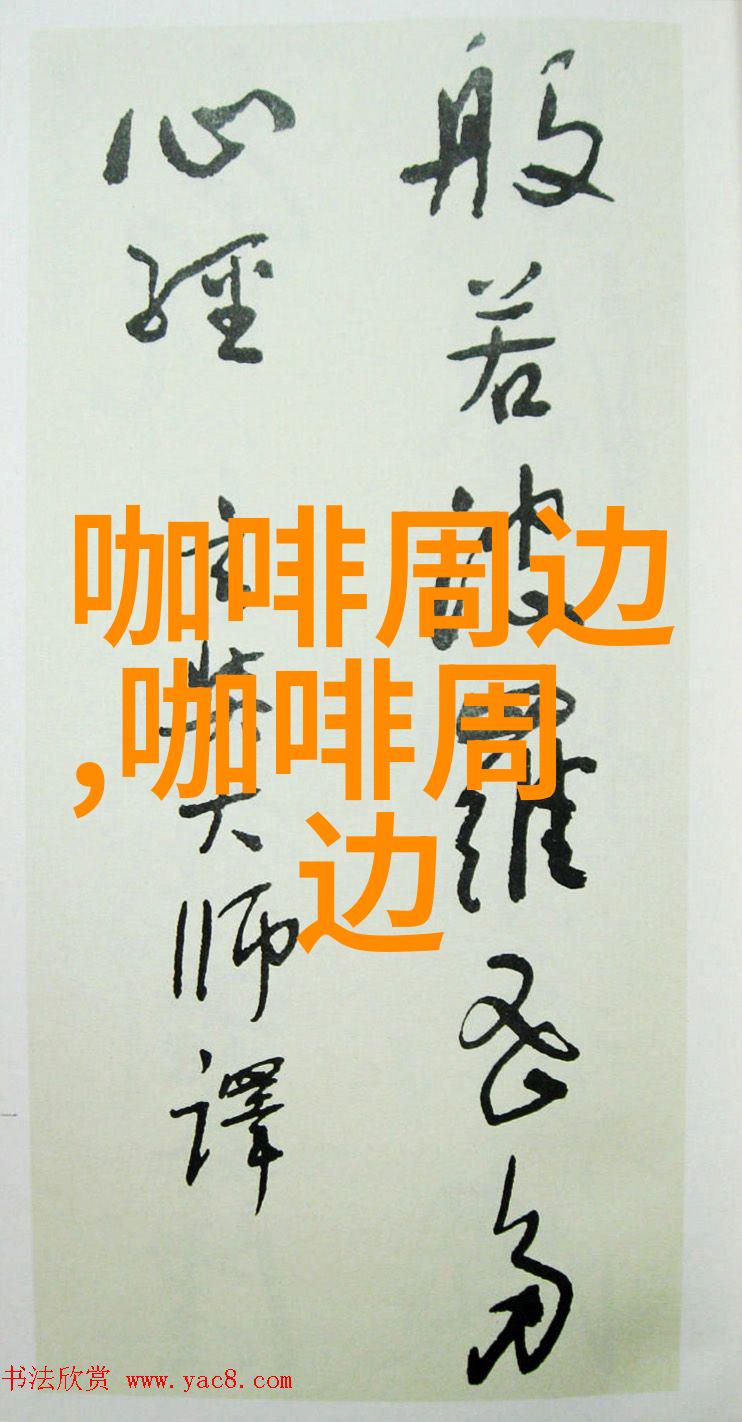 般若波羅密多
心經 玄奘大師譯
咖啡周边
,咖啡周
边
书法欣赏 www.yac8.com